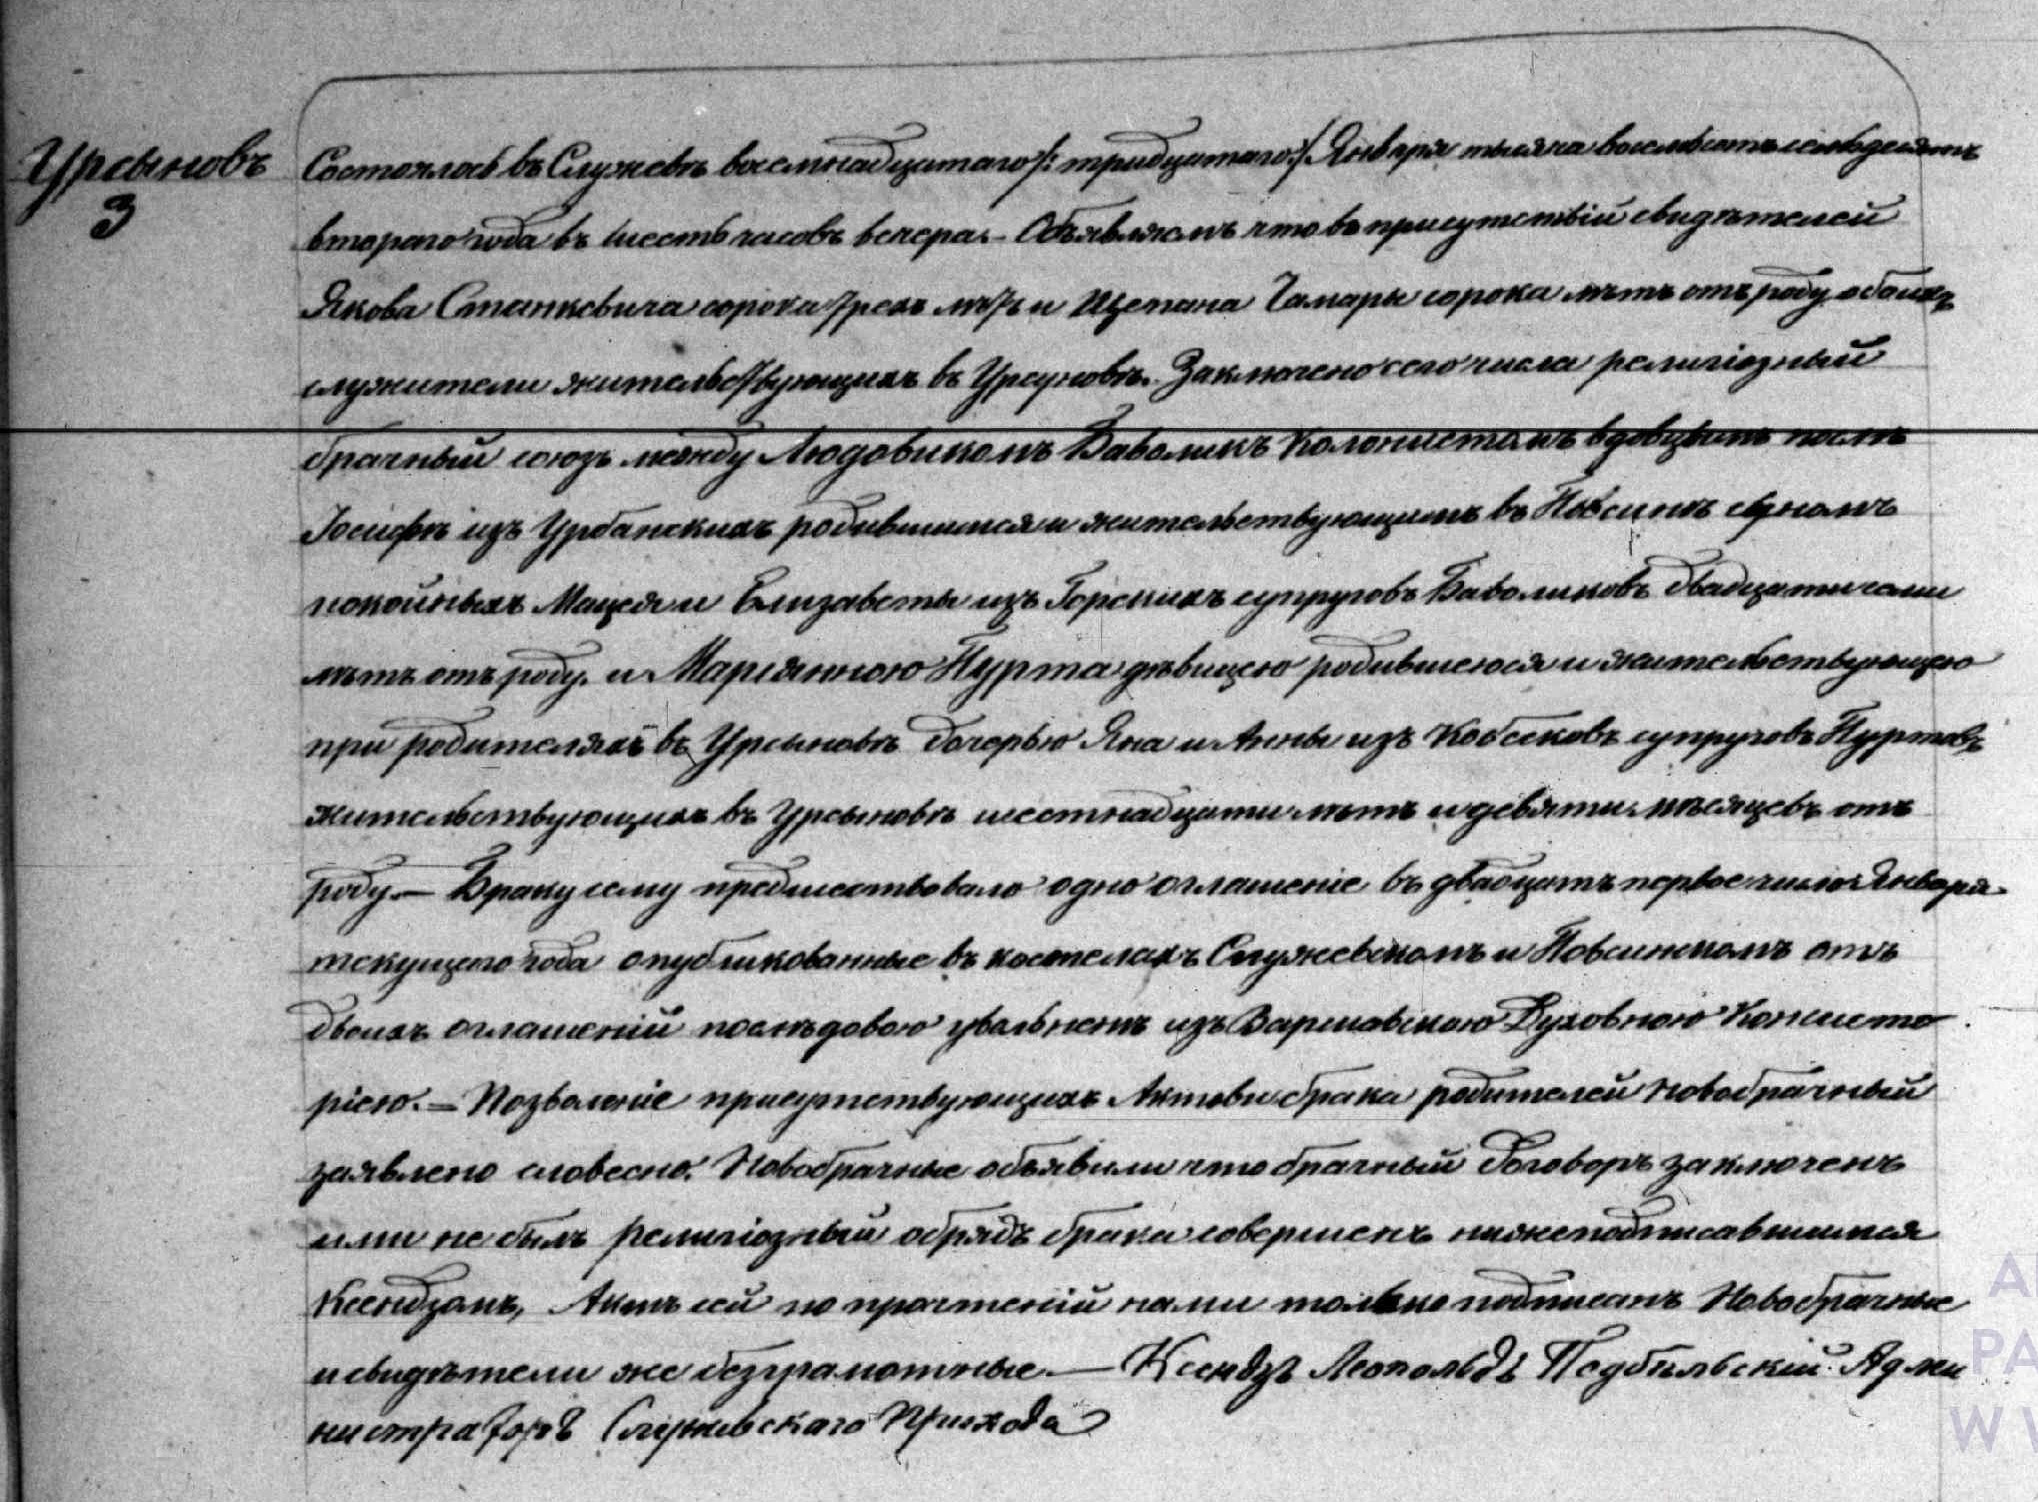 Урсыновъ
3
Состоялось въ Служевѣ восемнадцатаго /: тридцатаго :/ Января тысяча восемьсотъ семьдесятъ
втораго года въ шесть часовъ вечера. – Объявляемъ что въ присутствіи свидѣтелей
Якова Станкевича сорока трехъ лѣтъ и Щепана Чамары сорока лѣтъ отъ роду обоихъ
служители жительствующихъ въ Урсуновѣ. Заключено сего числа религіозный
брачный союзъ между Людовикомъ Баволикъ Колонистомъ вдовцемъ послѣ
Іосифѣ изъ Урбанскихъ родившимся и жительствующимъ въ сыномъ
покойныхъ Мацея и Елизаветы изъ Горскихъ супруговъ Баволиковъ двадцати семи
лѣтъ отъ роду. и Маріянною Пурта дѣвицею родившеюся и жительствующею
при родителяхъ въ Урсыновѣ дочерью Яна и Анны изъ Кобсковъ супруговъ Пуртовъ
жительствующихъ въ Урсыновѣ шестнадцати лѣтъ и девяти мѣсяцевъ отъ
роду. – Браку сему предшествовало одно оглашеніе въ двадцать первое число Января
текущего года опубликованные въ костелахъ Служевскомъ и Повсинскомъ отъ
двоихъ оглашеній послѣдовою увольненъ изъ Варшавскою Духовною Консисто
ріею. – Позволеніе присутствующихъ Актови брака родителей новобрачный
заявлено словесно. Новобрачные объявили что брачный договоръ заключенъ
ими не былъ религіозный обрядъ брака совершенъ нижеподписавшимся
Ксендзомъ, Актъ сей по прочтеніи нами только подписанъ Новобрачные
и свидѣтели же безграмотные. — Ксендзъ Леопольдъ Подбѣльскій Адми
нистраторъ Служевскаго Прихода